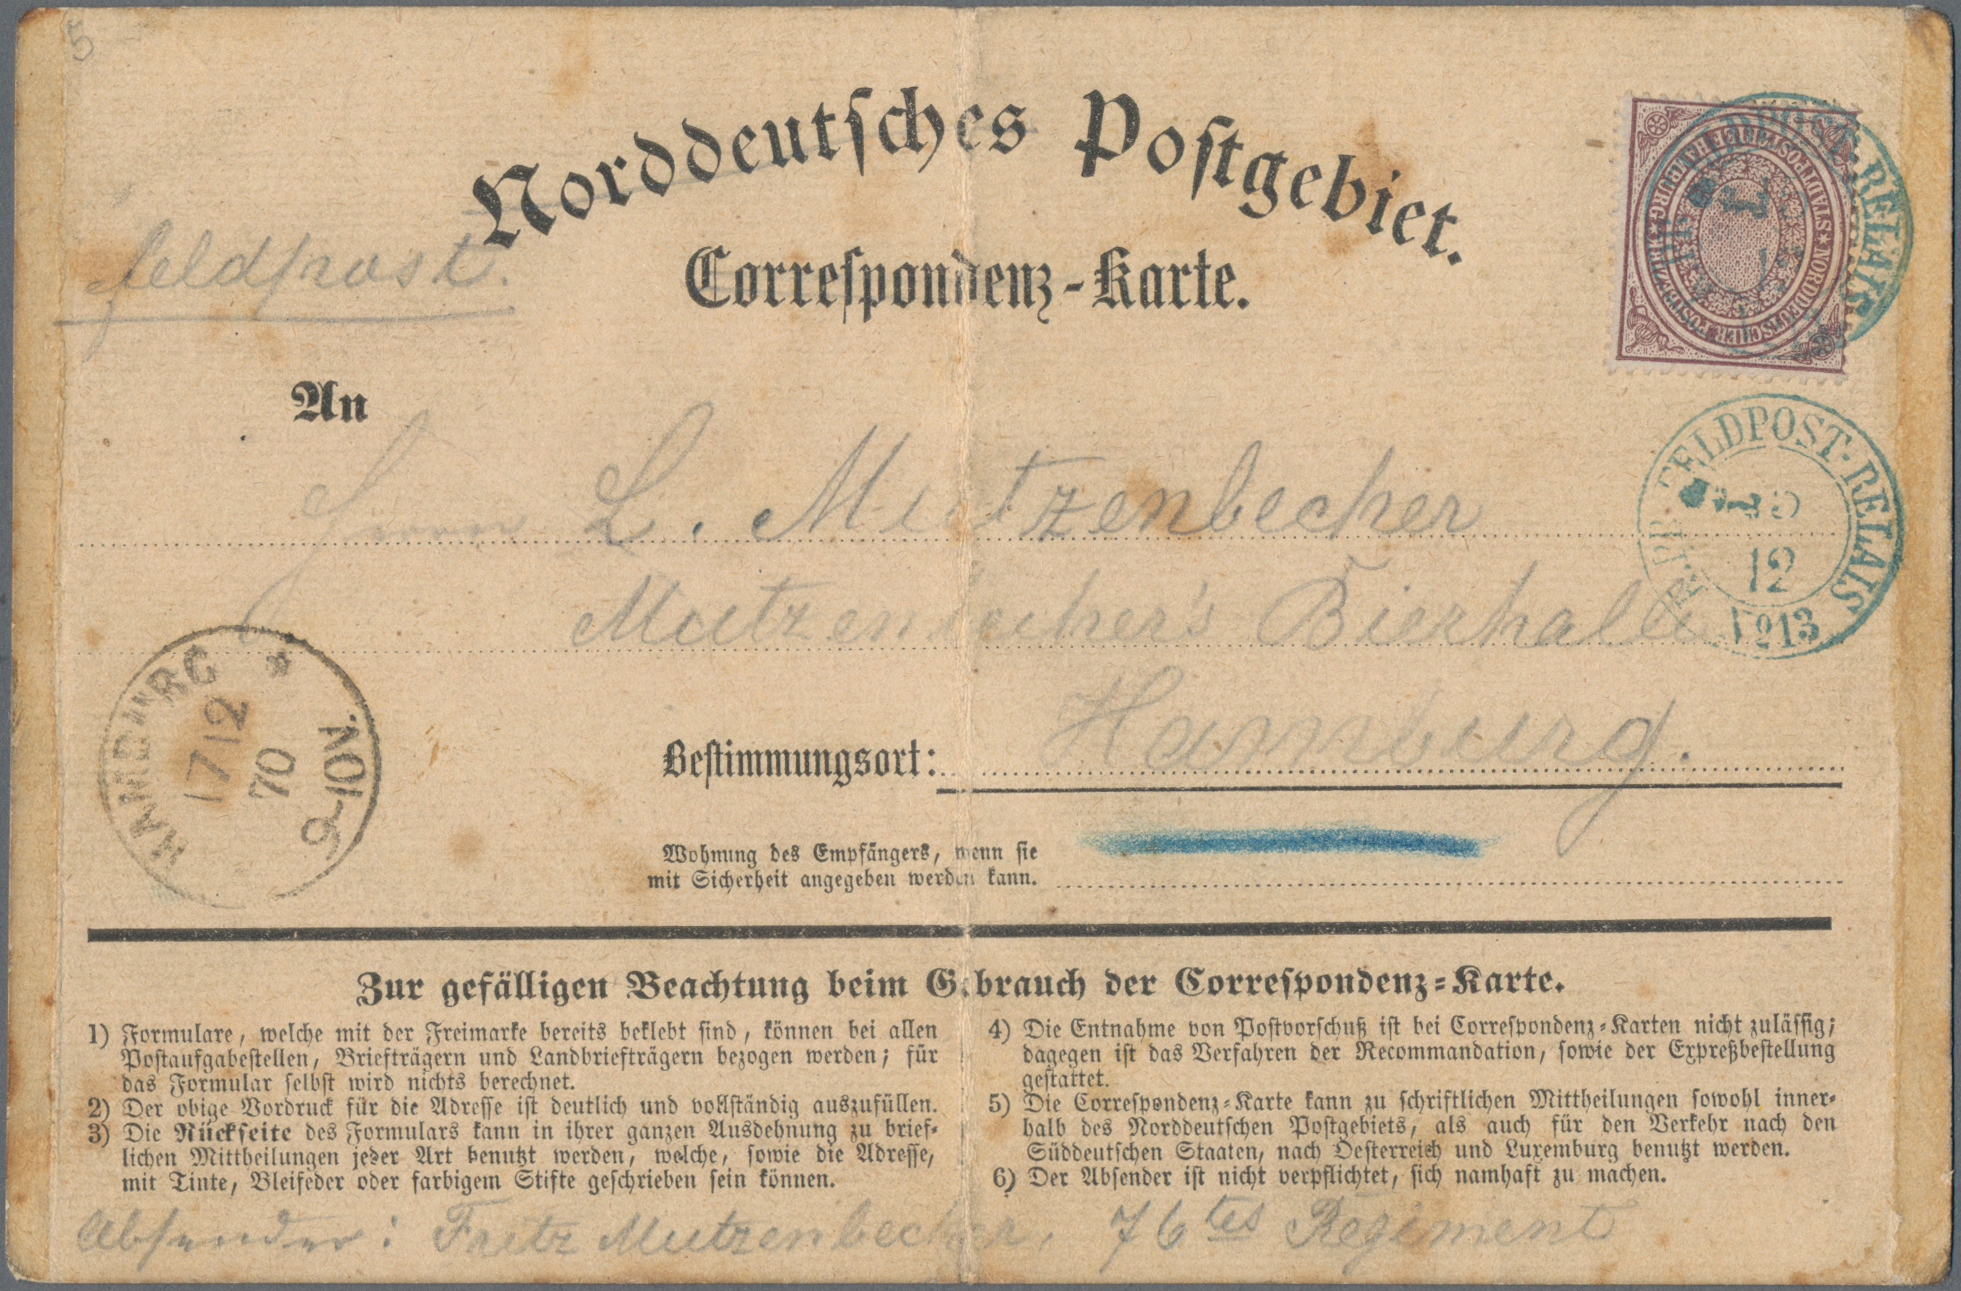 5
Norddeutsches Postgebiet.
Correspondenz-Karte.
feldpost.
NORDDEUTSCHER POSTBEZIRK * STADTPOSTBRIEFE HAMBURG *
K.PR. FELDPOST-RELAIS
12
No 13
An
Herrn L. Mutzenbecher
Mutzenbecher's Bierhalle
Hamburg.
Bestimmungsort:
HAMBURG *
17 12
70
9-10N.
Wohnung des Empfängers, wenn sie
mit Sicherheit angegeben werden kann.
Zur gefälligen Beachtung beim Gebrauch der Correspondenz-Karte.
1) Formulare, welche mit der Freimarke bereits beklebt sind, können bei allen
Postaufgabestellen, Briefträgern und Landbriefträgern bezogen werden; für
das Formular selbst wird nichts berechnet.
2) Der obige Vordruck für die Adresse ist deutlich und vollständig auszufüllen.
3) Die Rückseite des Formulars kann in ihrer ganzen Ausdehnung zu brief-
lichen Mittheilungen jeder Art benutzt werden, welche, sowie die Adresse,
mit Tinte, Bleifeder oder farbigem Stifte geschrieben sein können.
4) Die Entnahme von Postvorschuß ist bei Correspondenz-Karten nicht zulässig;
dagegen ist das Verfahren der Recommandation, sowie der Expreßbestellung
gestattet.
5) Die Correspondenz-Karte kann zu schriftlichen Mittheilungen sowohl inner-
halb des Norddeutschen Postgebiets, als auch für den Verkehr nach den
Süddeutschen Staaten, nach Oesterreich und Luxemburg benutzt werden.
6) Der Absender ist nicht verpflichtet, sich namhaft zu machen.
Absender: Fritz Mutzenbecher, 76tes Regiment